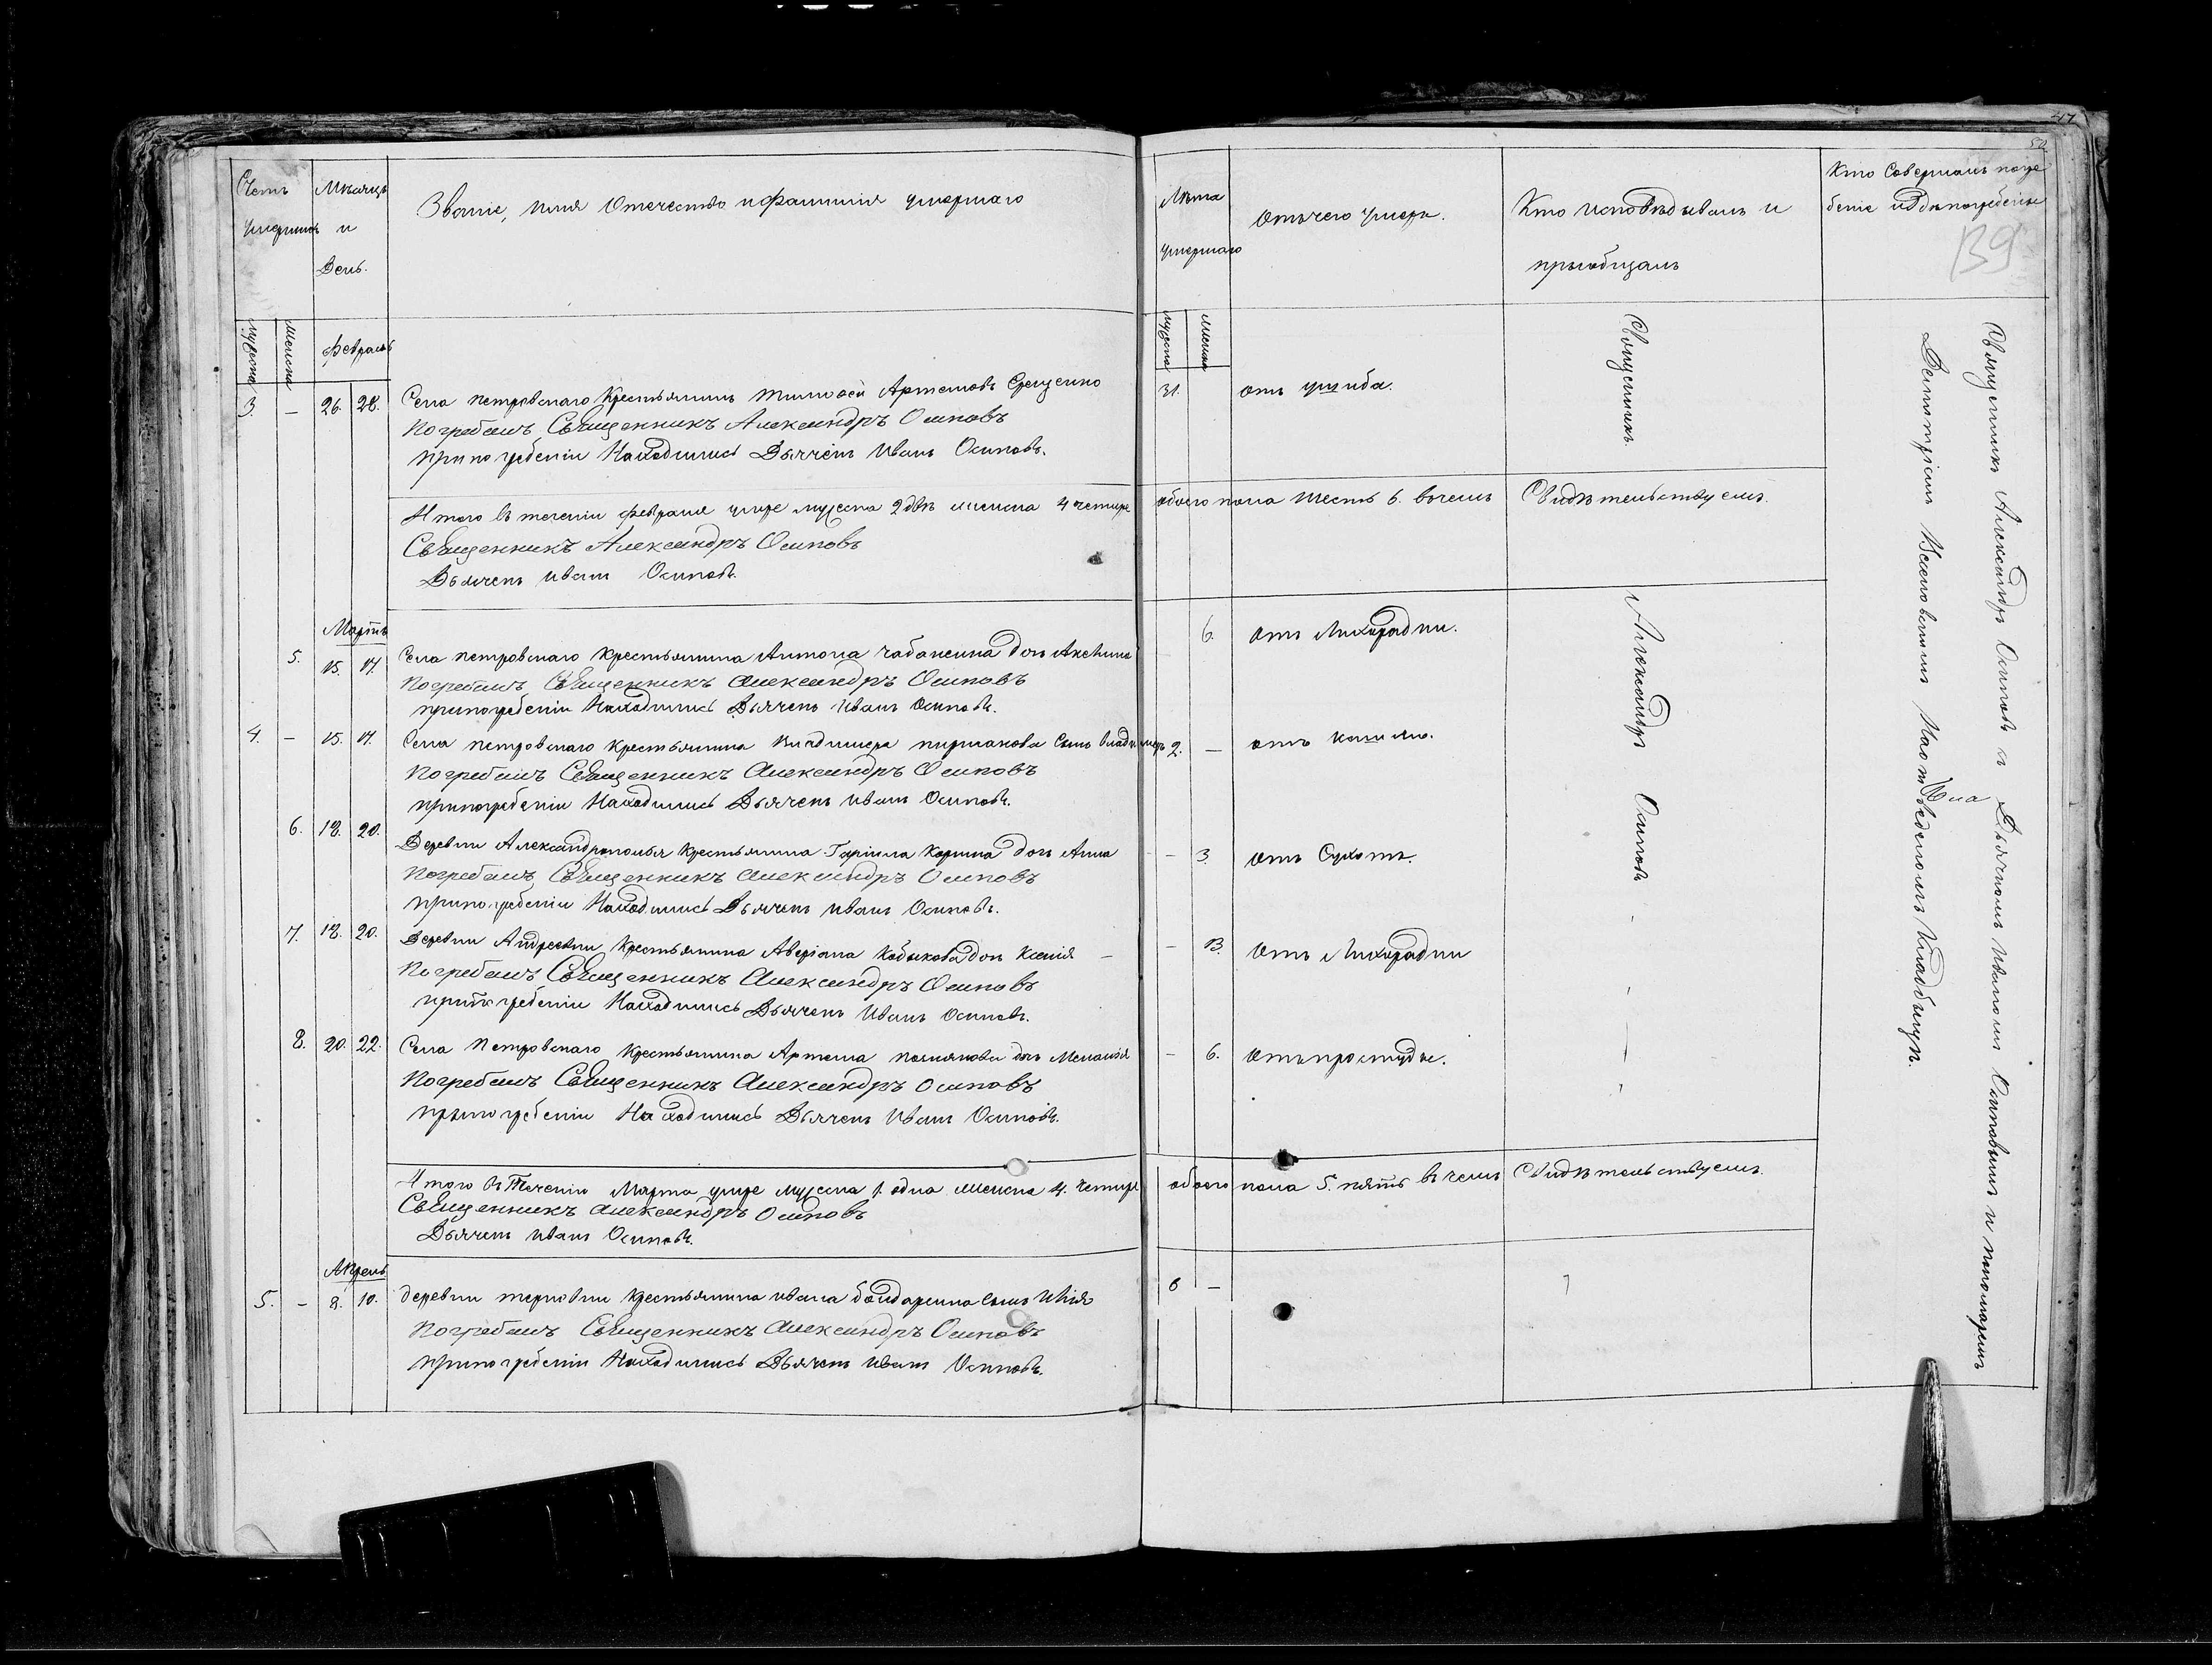 47
50
Счетъ умершихъ
Мѣсяцъ и день.
Званіе, имя Отечество и фамилія умершаго
Лѣта умершаго
Отъ чего умеръ.
Кто исповѣдывалъ и пріобщалъ
Кто совершалъ погребеніе и гдѣ погребены
139
мужеска
женска
февраль
мужеска
женска
3 — 26. 28. Села петровскаго крестьянинъ Тимофей Артемовъ
31. отъ ушиба.
погребалъ Священникъ Александръ Осиповъ
при погребеніи Находились Дьячекъ Иванъ Осиповъ.
Итого въ теченіи февраля умре мужеска 2 двѣ женска 4 четыре обоего пола шесть 6. въ чемъ Свидѣтельствуемъ.
Священникъ Александръ Осиповъ
Дьячекъ Иванъ Осиповъ.
Мартъ
5. 15. 17. Села петровскаго крестьянина Антона чабаненка дочь
6. отъ Лихорадки.
погребалъ Священникъ Александръ Осиповъ
при погребеніи Находились Дьячекъ Иванъ Осиповъ.
4. — 15. 17. Села петровскаго крестьянина Владимера сынъ владимеръ
2. — отъ кашлю.
погребалъ Священникъ Александръ Осиповъ
при погребеніи Находились Дьячекъ Иванъ Осиповъ.
6. 18. 20. Деревни Александрополья крестьянина Гаріила дочь Анна
— 3. отъ Сухотъ.
погребалъ Священникъ Александръ Осиповъ
при погребеніи Находились Дьячекъ Иванъ Осиповъ.
7. 18. 20. Деревни Андреевки крестьянина Аверіана Кобыкова дочь Ксенія —
— 13. отъ Лихорадки
погребалъ Священникъ Александръ Осиповъ
при погребеніи Находились Дьячекъ Иванъ Осиповъ.
8. 20. 22. Села Петровскаго крестьянина Артема дочь Меланія
— 6. отъ простуды.
погребалъ Священникъ Александръ Осиповъ
при погребеніи Находились Дьячекъ Иванъ Осиповъ.
Итого въ Теченіи Марта умре мужеска 1. одна женска 4. четыре обоего пола 5. пять въ чемъ Свидѣтельствуемъ.
Священникъ Александръ Осиповъ
Дьячекъ Иванъ Осиповъ.
Апрель
5. — 8. 10. деревни терновки крестьянина ивана бондаренка сынъ
6 —
погребалъ Священникъ Александръ Осиповъ
при погребеніи Находились Дьячекъ Иванъ Осиповъ.
Священникъ Александръ Осиповъ
Священникъ Александръ Осиповъ с Дьячкомъ Иваномъ Осиповымъ и пономаремъ
на
Кладбищѣ.